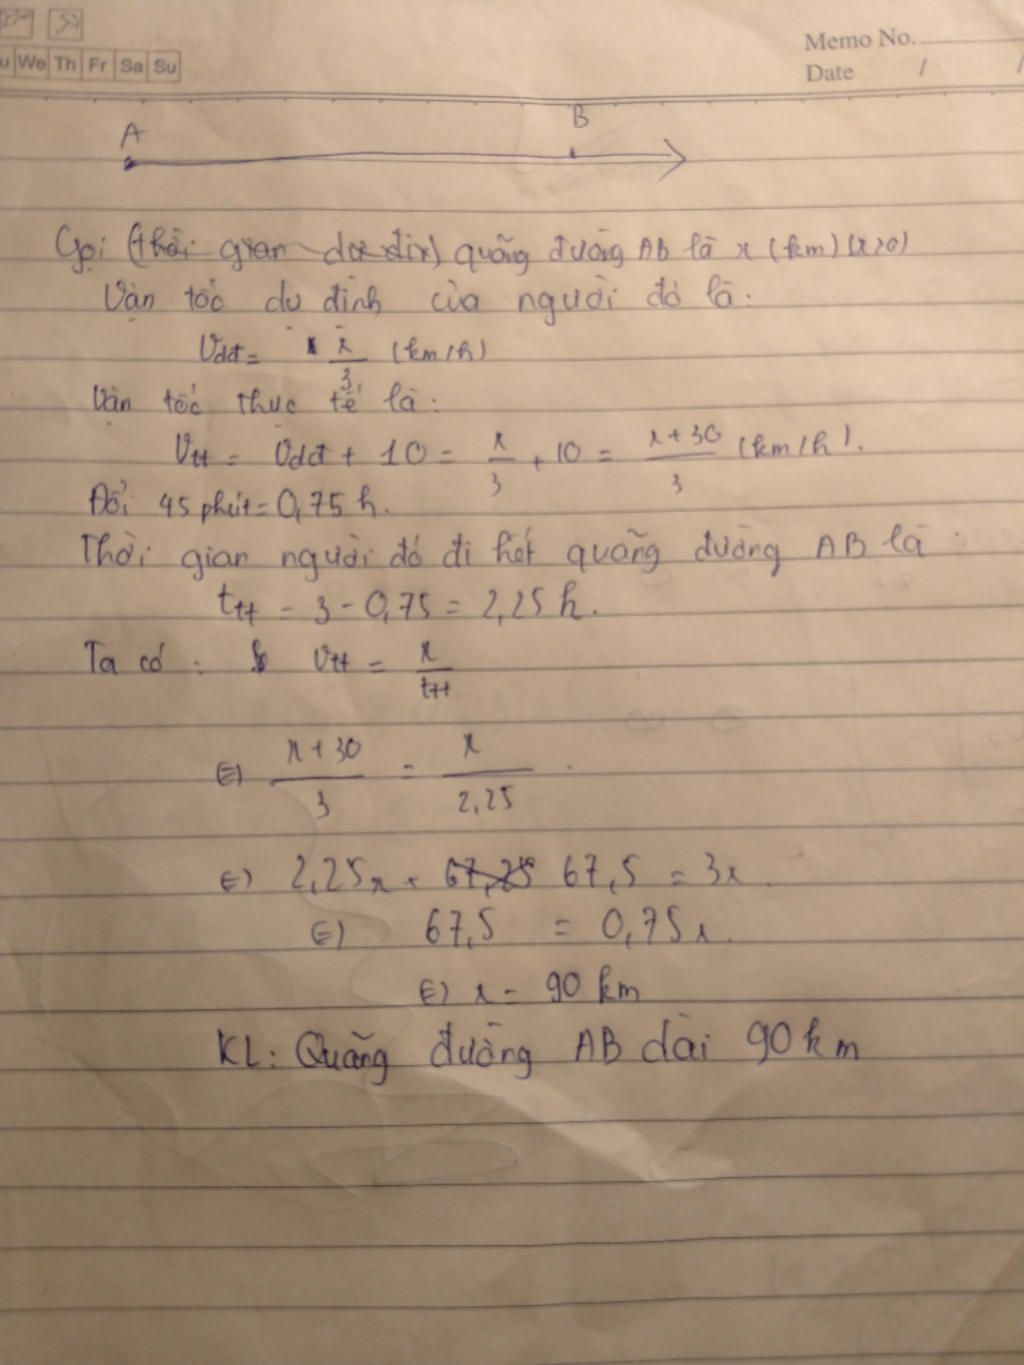 Memo No.
u We Th Fr Sa Su
Date / /
A B
Gọi (thời gian dự định) quãng đường AB là x (km) (x>0)
Vận tốc dự định của người đó là:
Vdđ = x/3 (km/h)
Vận tốc thực tế là:
Vtt = Vdđ + 10 = x/3 + 10 = x+30/3 (km/h).
Đổi 45 phút = 0,75 h.
Thời gian người đó đi hết quãng đường AB là:
ttt = 3 - 0,75 = 2,25 h.
Ta có: Vtt = x/ttt
⇔ x+30/3 = x/2,25
⇔ 2,25x + 67,25 67,5 = 3x
⇔ 67,5 = 0,75x.
⇔ x = 90 km
KL: Quãng đường AB dài 90 km